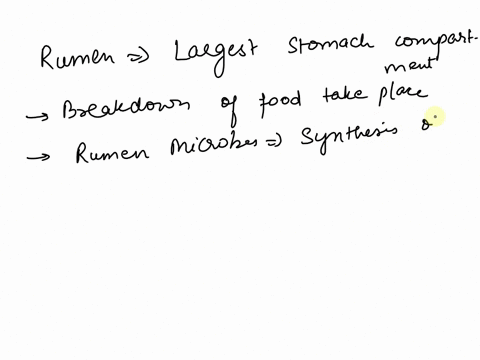 Rumen ⇒ Largest Stomach compart-
ment
→ Breakdown of food take place
→ Rumen Microbes ⇒ Synthesis o